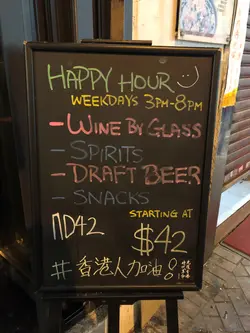 HAPPY HOUR
WEEKDAYS 3PM-8PM
- WINE BY GLASS
- SPIRITS
- DRAFT BEER
- SNACKS
STARTING AT
$42
# 香港人加油!